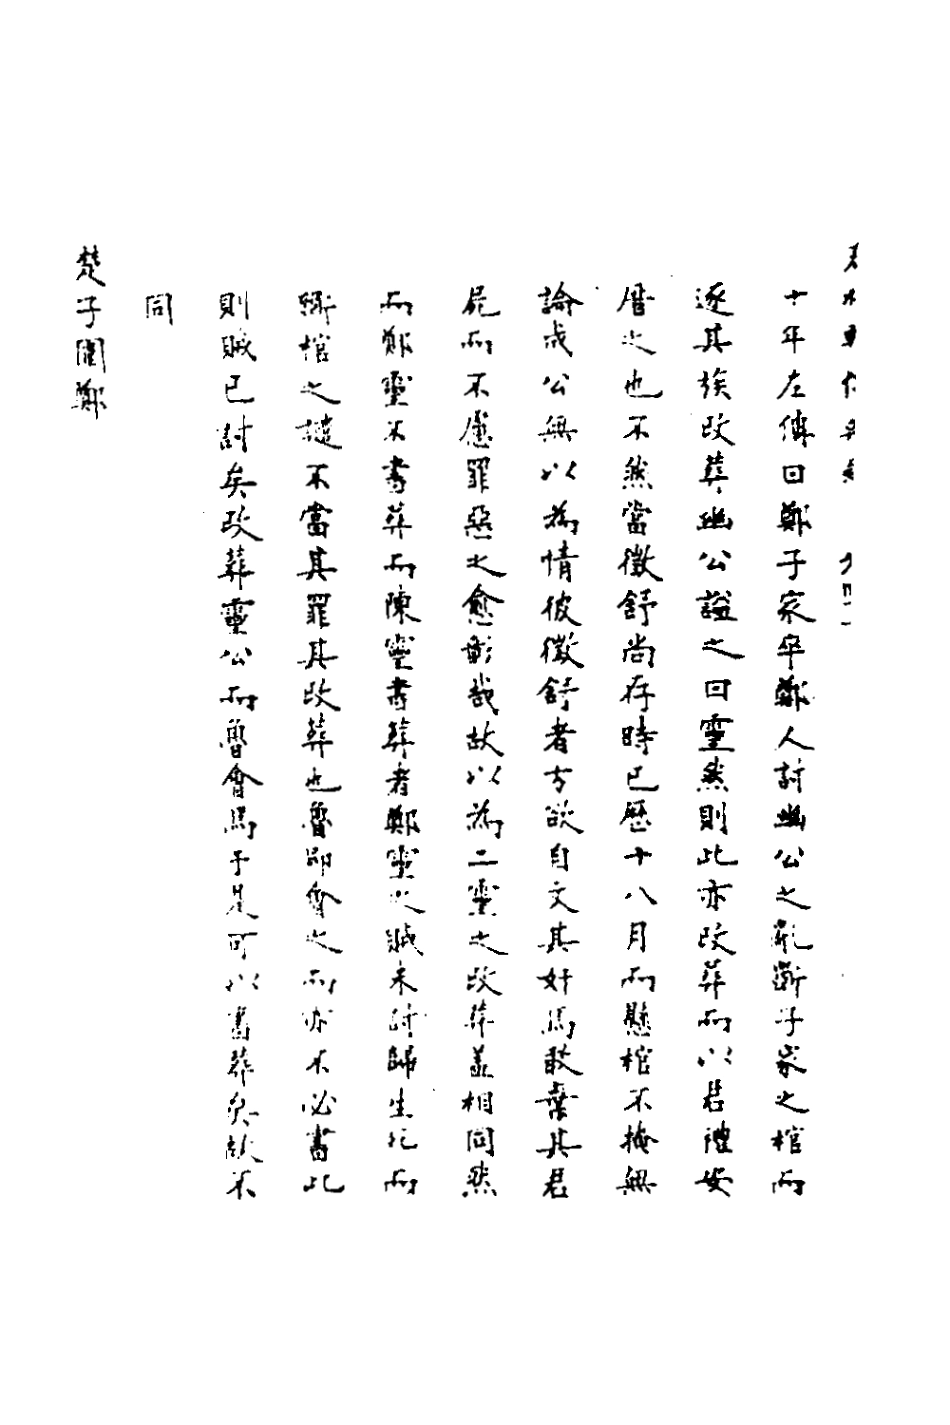 十年左傳曰鄭子家卒鄭人討幽公之亂斲子家之棺而
逐其族改葬幽公諡之曰靈然則此亦改葬而以君禮安
厝之也不然當徵舒尚存時已歷十八月而懸棺不掩無
論成公無以為情彼徵舒者方欲自文其奸焉敢棄其君
屍而不慮罪惡之愈彰哉故以為二靈之改葬並相同然
而鄭靈不書葬而陳靈書葬者鄭靈之賊未討歸生死而
斲棺之譴不當其罪其改葬也魯即會之而亦不必書此
則賊已討矣改葬靈公而魯會焉于是可以書葬矣故不
同
楚子圍鄭